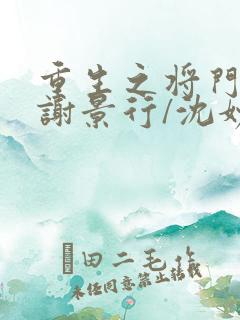 重生之将门
謝景行/沈妙
田二毛作
未任同意禁止转载